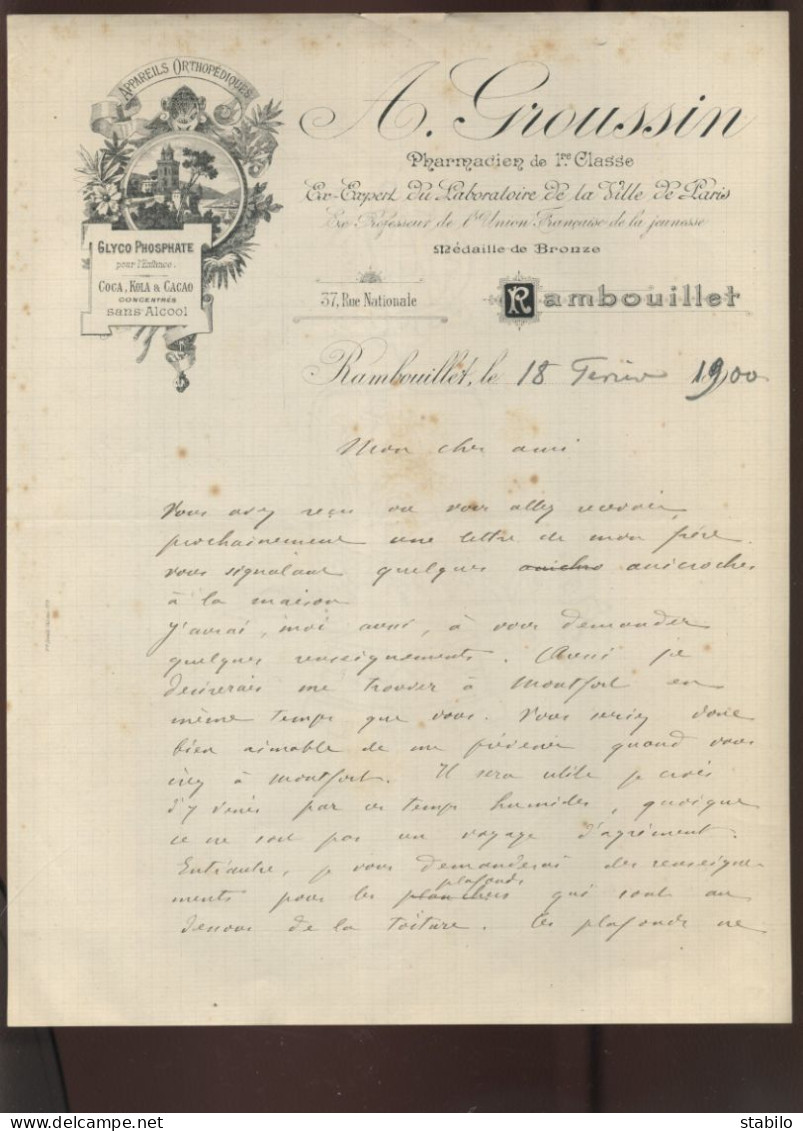 APPAREILS ORTHOPÉDIQUES
GLYCO PHOSPHATE
pour l'Enfance.
COCA, KOLA & CACAO
CONCENTRÉS
sans Alcool
A. Groussin
Pharmacien de 1re Classe
Ex-Expert du Laboratoire de la Ville de Paris
Ex Professeur de l'Union Française de la jeunesse
Médaille de Bronze
37, Rue Nationale
Rambouillet
Rambouillet, le 18 Février 1900
Mon cher ami
Vous avez reçu ou vous allez recevoir
prochainement une lettre de mon frère
vous signalant quelques anicroches
à la maison
J'aurai, moi aussi, à vous demander
quelques renseignements. Aussi je
desirerais me trouver à Montfort en
même temps que vous. Vous seriez donc
bien aimable de me prévenir quand vous
irez à Montfort. Il sera utile je crois
d'y venir par ces temps humides, quoique
ce ne soit pas un voyage d'agrément.
Entr'autre, je vous demanderai des renseigne-
ments pour les planchers plafonds qui sont au
dessous de la toiture. Ces plafonds ne
delcampe.net
stabilo